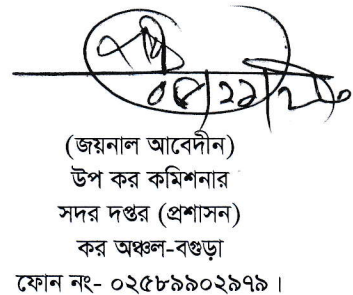 (জয়নাল আবেদীন)
উপ কর কমিশনার
সদর দপ্তর (প্রশাসন)
কর অঞ্চল-বগুড়া
ফোন নং- ০২৫৮৯৯০২৯৭৯।